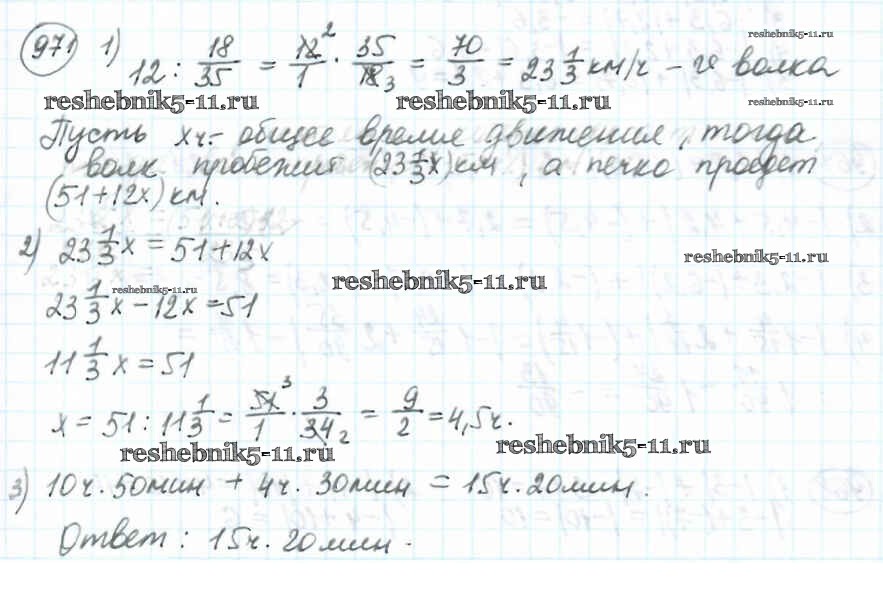 reshebnik5-11.ru
971 1) 12 : 18/35 = 12²/1 · 35/18₃ = 70/3 = 23 1/3 км/ч – v волка
reshebnik5-11.ru reshebnik5-11.ru reshebnik5-11.ru
Пусть x ч. – общее время движения, тогда
волк пробежит (23 1/3 x) км, а печка проедет
(51+12x) км.
2) 23 1/3 x = 51+12x
reshebnik5-11.ru
reshebnik5-11.ru reshebnik5-11.ru
23 1/3 x – 12x = 51
11 1/3 x = 51
x = 51 : 11 1/3 = 51³/1 · 3/34₂ = 9/2 = 4,5 ч.
reshebnik5-11.ru reshebnik5-11.ru
3) 10 ч. 50 мин + 4 ч. 30 мин = 15 ч. 20 мин.
Ответ : 15 ч. 20 мин.